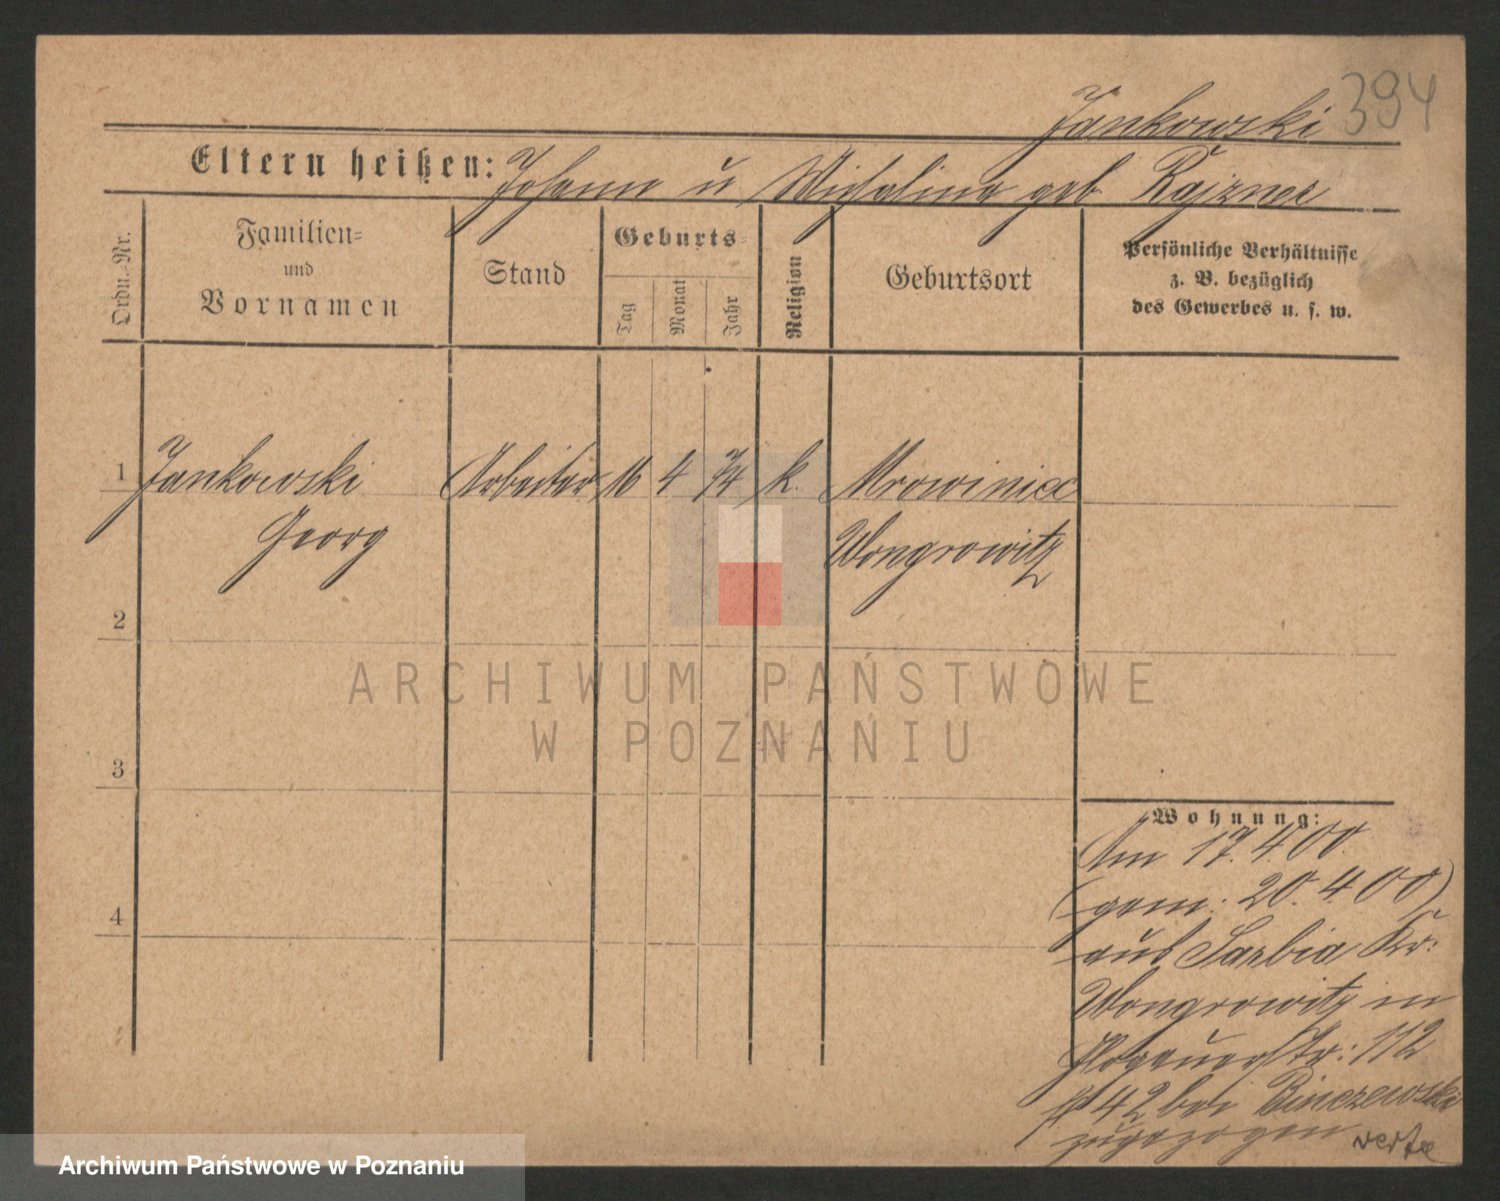 394
Jankowski
Eltern heißen: Johann u Michalina geb. Rajzner
Ordn.-Nr.
Familien-
und
Vornamen
Stand
Geburts-
Tag
Monat
Jahr
Religion
Geburtsort
Persönliche Verhältnisse
z. B. bezüglich
des Gewerbes u. s. w.
1 Jankowski Arbeiter 16 4 74 k. Mrowiniec
Georg Wongrowitz
2
3
4
ARCHIWUM PAŃSTWOWE
W POZNANIU
Wohnung:
Am 17.4.00
(gem: 20.4.00)
aus Sarbia Kr:
Wongrowitz in
Glogauerstr: 112
42 bei Binczewski
zugezogen verte
Archiwum Państwowe w Poznaniu